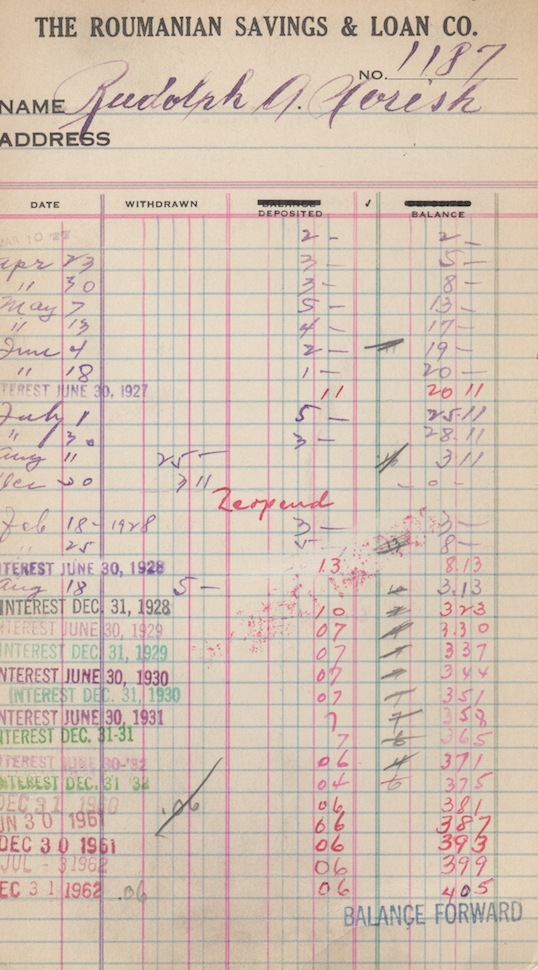 THE ROUMANIAN SAVINGS & LOAN CO.
NO. 1187
NAME Rudolph A.
ADDRESS
DATE WITHDRAWN BALANCE DEPOSITED ✓ DEPOSITED BALANCE
MAR 10 2 – 2 –
Apr 23 3 – 5 –
" 30 3 – 8 –
May 7 5 – 13 –
" 13 4 – 17 –
June 4 2 – 19 –
" 18 1 – 20 –
TEREST JUNE 30, 1927 11 20 11
July 1 5 – 25.11
" 30 3 – 28.11
Aug 11 25 – 3 11
Dec 20 3 11 – 0 –
Reopend
Feb 18 – 1928 3 – 3 –
" 25 5 – 8 –
INTEREST JUNE 30, 1928 13 8.13
Aug 18 5 – 3.13
INTEREST DEC. 31, 1928 10 323
TEREST JUNE 30, 1929 07 3.30
TEREST DEC. 31, 1929 07 337
INTEREST JUNE 30, 1930 07 344
INTEREST DEC. 31, 1930 07 351
INTEREST JUNE 30, 1931 7 358
TEREST DEC. 31-31 7 365
TEREST JUNE 30-'32 06 371
INTEREST DEC. 31 '32 04 375
DEC 31 1960 .06 06 381
UN 30 1961 06 387
DEC 30 1961 06 393
JUL - 3 1962 06 399
EC 31 1962 .06 06 405
BALANCE FORWARD